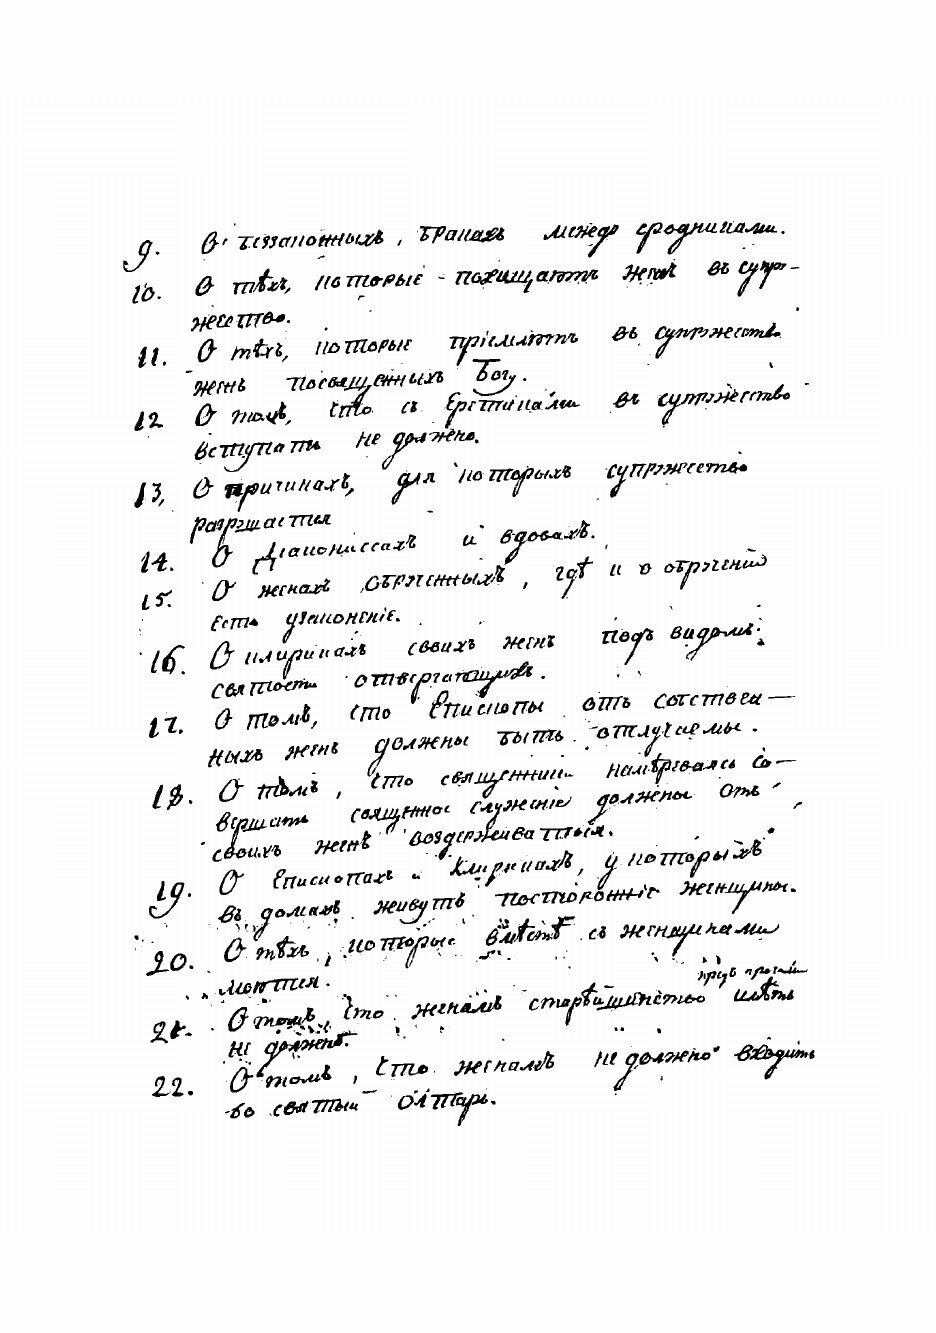 9. О беззаконныхъ, бракахъ между сродниками.
10. О тѣхъ, которые похищаютъ женъ въ супру-
жество.
11. О тѣхъ, которые пріемлютъ въ супружество
женъ посвященныхъ Богу.
12 О томъ, что съ Еретиками въ супружество
вступать не должно.
13, О причинахъ, для которыхъ супружество
разрѣшается
14. О Діакониссахъ и вдовахъ.
15. О женахъ обрученныхъ, гдѣ и о обрученіи
есть узаконеніе.
16. О клирикахъ своихъ женъ подъ видомъ
святости отвергающихъ.
17. О томъ, что Епископы отъ собствен-
ныхъ женъ должны быть отлучаемы.
18. О томъ, что священники намѣреваясь со-
вершать священное служеніе должены отъ
своихъ женъ воздерживаться.
19. О Епископахъ и Клирикахъ, у которыхъ
въ домахъ живутъ посторонніе женщины.
20. О тѣхъ, которые вмѣстѣ съ женщинами
моются.
предъ прочими
21. О томъ, что женамъ старѣйшинство имѣть
не должно.
22. О томъ, что женамъ не должно входить
во святый олтарь.